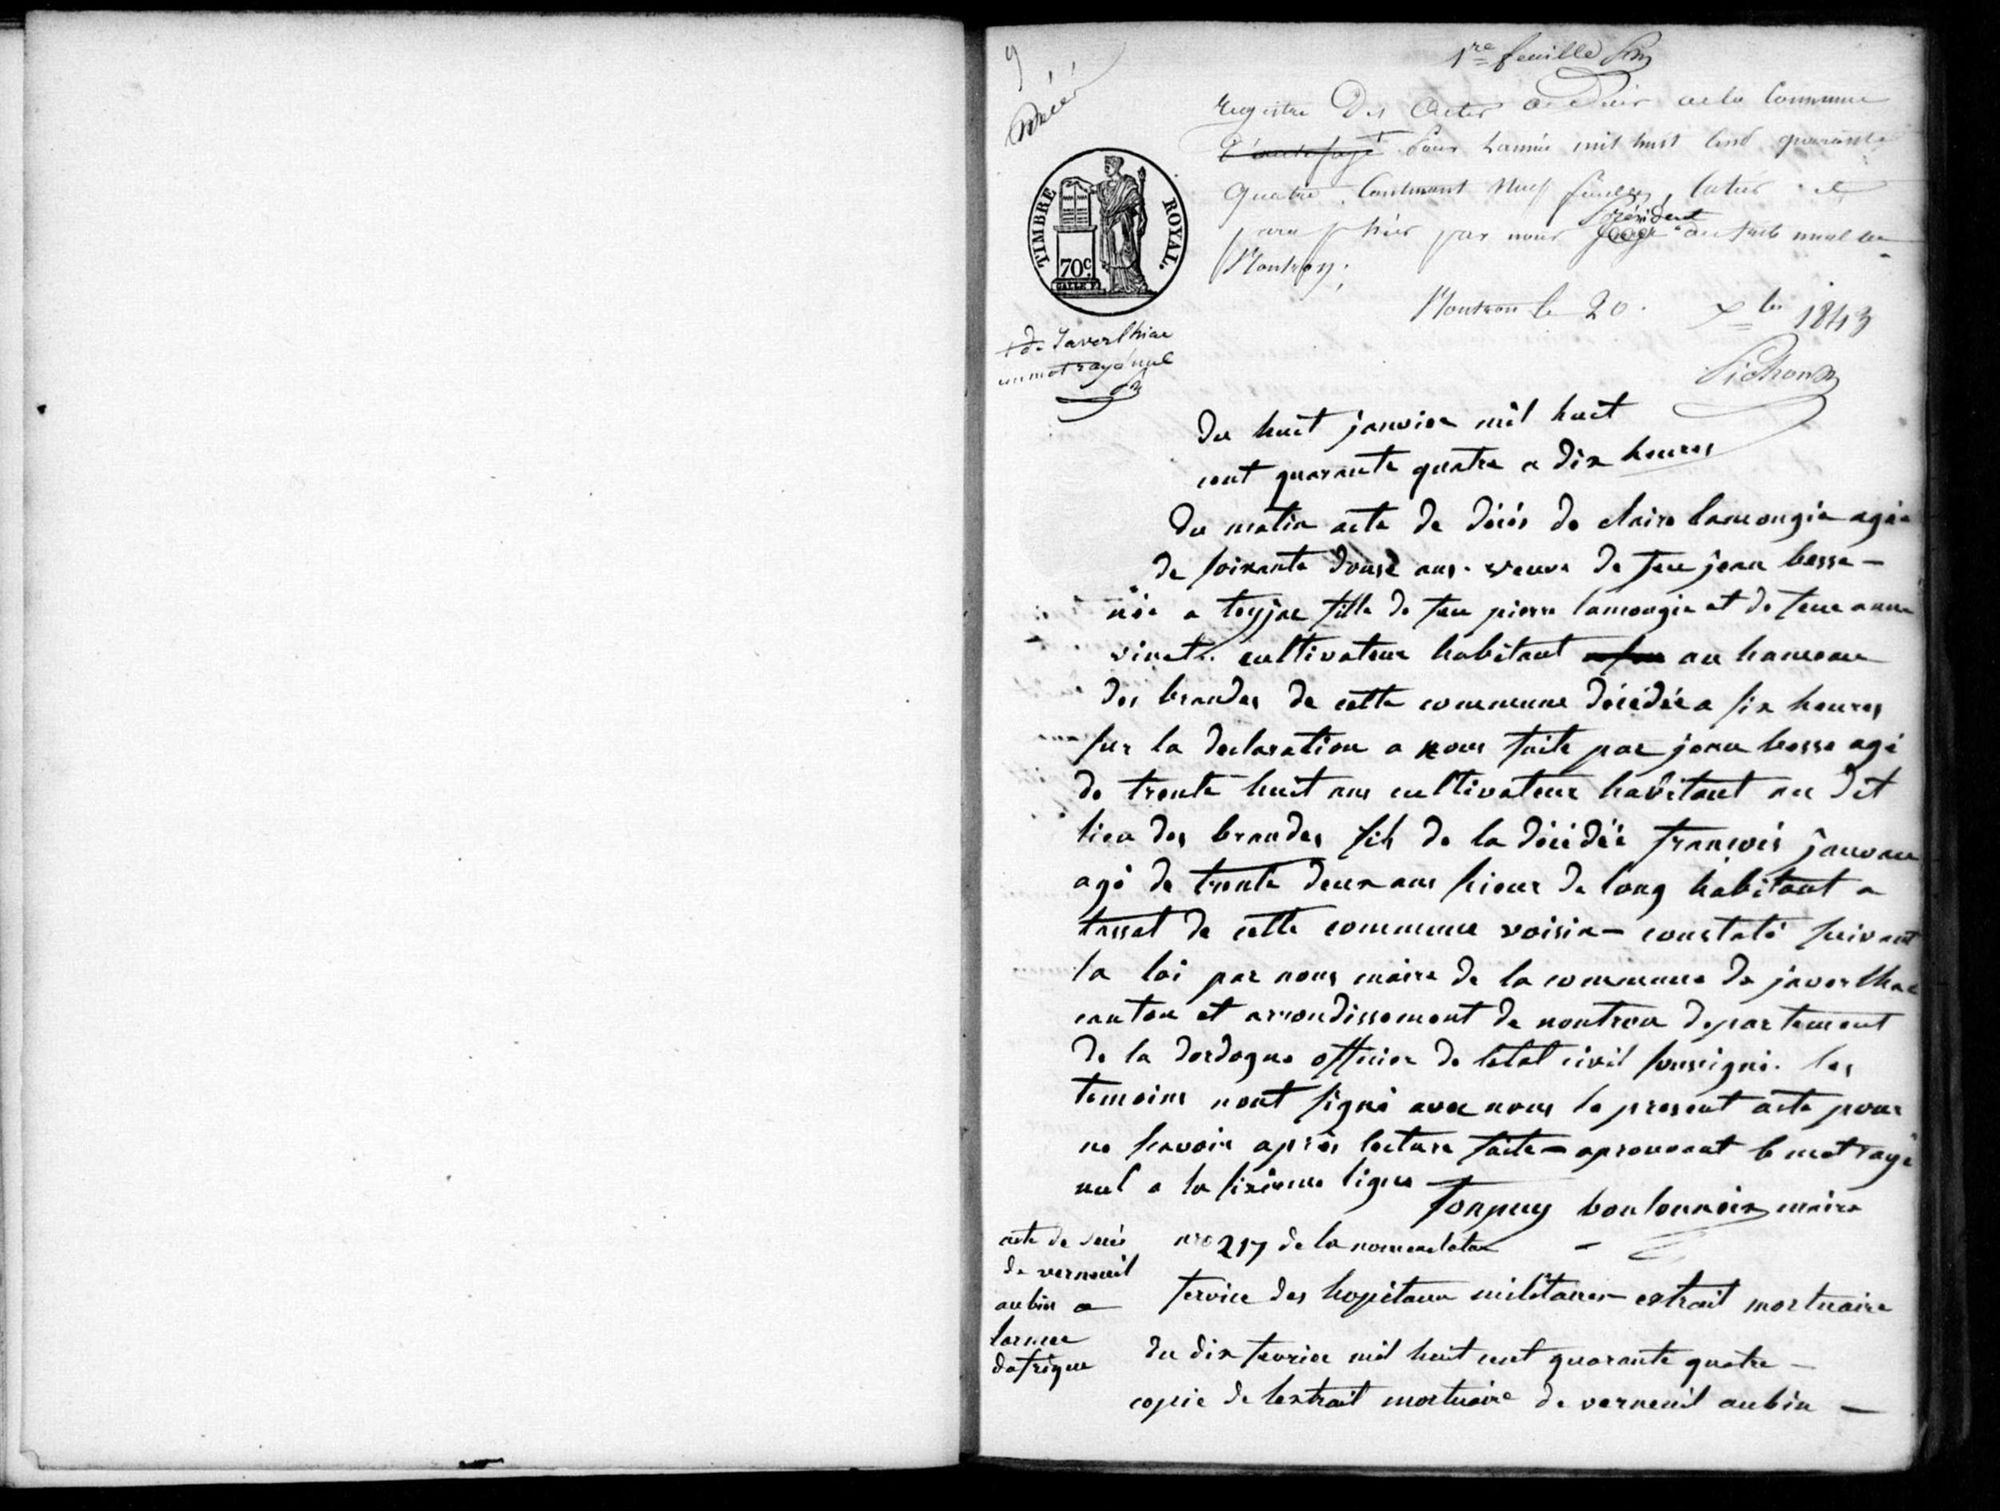 1re feuille
9
décès
Registre Des Actes de Décès de la Commune
d'hautefaye Pour l'année mil huit cent quarante
quatre, Contenant neuf feuilles, cotées et
paraphées par nous juge Président du tribunal de
Nontron.
Nontron le 20 Xbre 1843
TIMBRE ROYAL.
70c.
+ de Javerlhiac
un mot rayé nul
du huit janvier mil huit
cent quarante quatre a dix heures
du matin acte de décés de claire lamougie agée
de soixante douse ans. veuve de feu jean besse —
née a teyjac fille de feu pierre lamougie et de feue anne
vinet. cultivateur habitant au hameau
des brandes de cette commune décédée a six heures
sur la declaration a nous faite par jean besse agé
de trente huit ans cultivateur habitant au dit
lieu des brandes fils de la décédée françois januau
agé de trente deux ans sieur de long habitant a
tassat de cette commune voisin — constaté suivant
la loi par nous maire de la commune de javerlhac
canton et arrondissement de nontron departement
de la dordogne officier de letat civil soussigné. les
temoins nont signé avec nous le present acte pour
ne savoir après lecture faite — aprouvant le mot rayé
nul a la sixieme ligne
boulonneix maire
acte de décés
de verneuil
aubin a
larmee
dafrique
nro 217 de la nomenclatur
service des hopitaux militaires — extrait mortuaire
du dix fevrier mil huit cent quarante quatre —
copie de lextrait mortuaire de verneuil aubin —